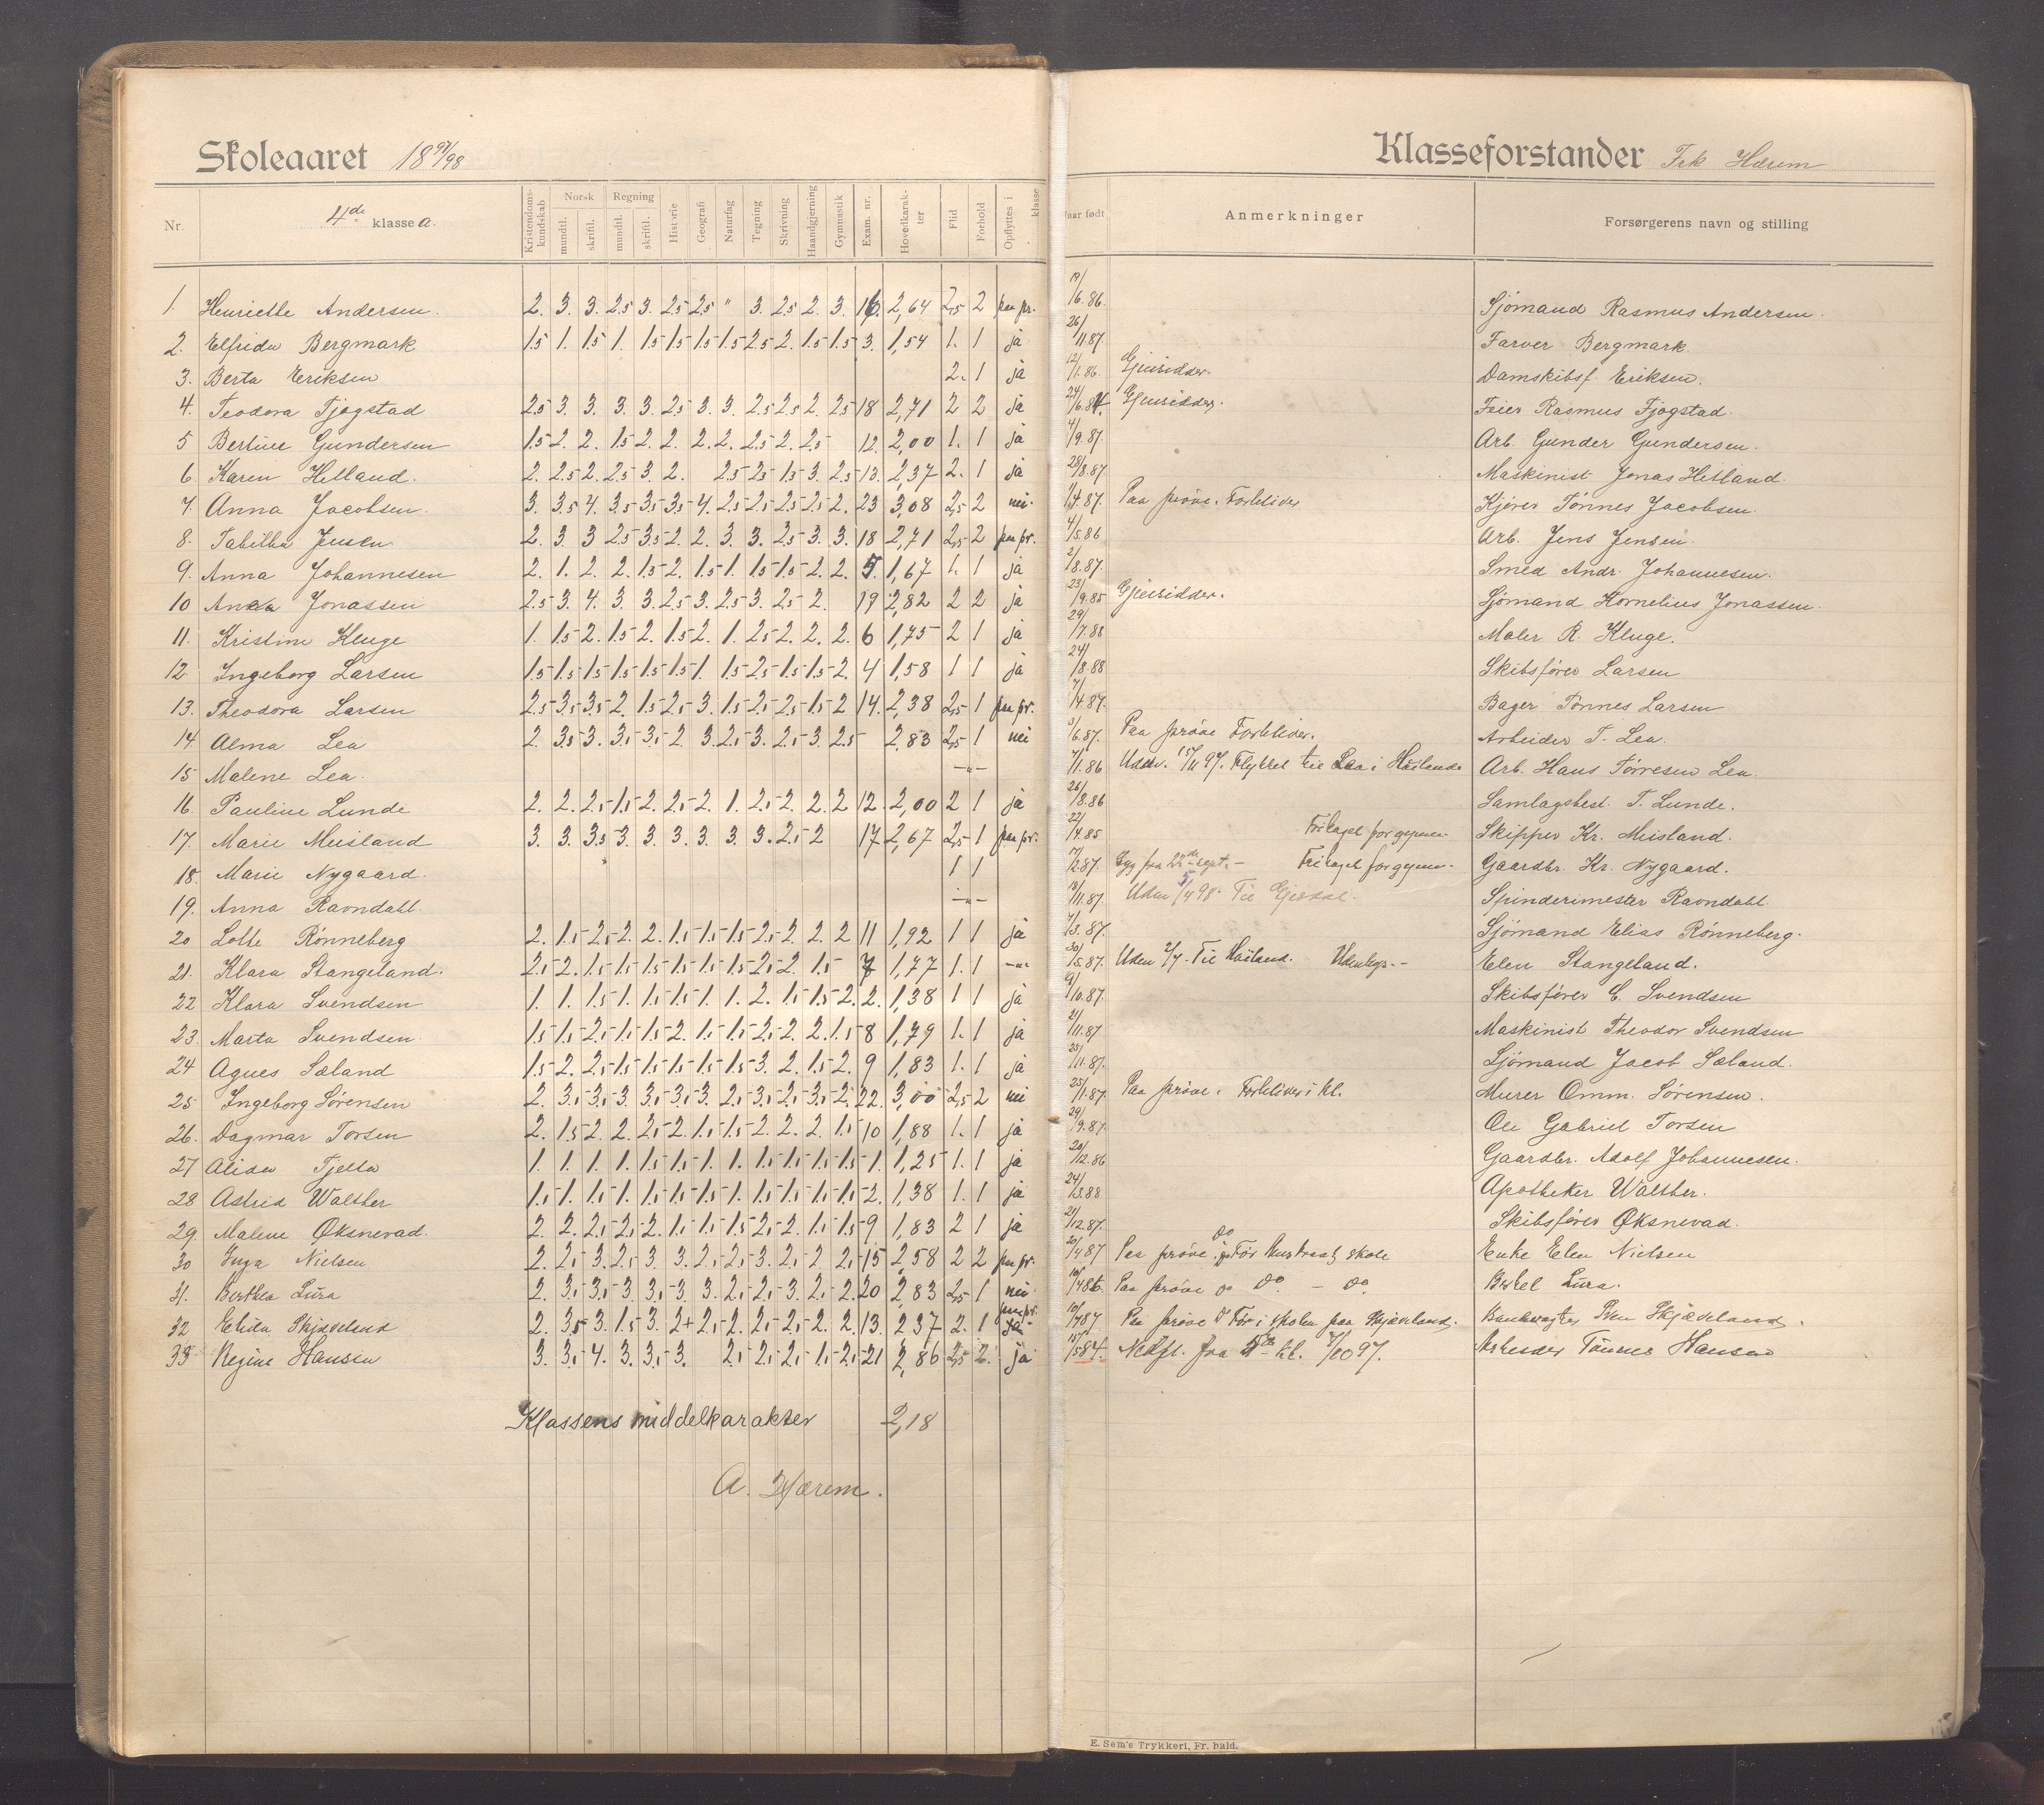 Skoleaaret 1897/98
Klasseforstander Frk Hærem
Nr.
4de klasse a.
Kristendoms-kundskab
Norsk
mundtl.
skriftl.
Regning
mundtl.
skriftl.
Historie
Geografi
Naturfag
Tegning
Skrivning
Haandgjerning
Gymnastik
Exam. nr.
Hovedkarakter
Flid
Forhold
Opflyttes i klasse
aar født
Anmerkninger
Forsørgerens navn og stilling
1. Henriette Andersen. 2. 3. 3. 2.5 3. 2.5 2.5 " 3. 2.5 2. 3. 16. 2,64 2,5 2 paa pr. 19/6.86. Sjömand Rasmus Andersen.
2. Elfrida Bergmark 1.5 1. 1.5 1. 1.5 1.5 1.5 1.5 2.5 2. 1.5 1.5 3. 1,54 1. 1 ja 26/11.87. Farver Bergmark.
3. Berta Eriksen 2. 1 ja 12/1.86. Gjensidder. Damskibsf. Eriksen.
4. Teodora Tjøgstad 2.5 3. 3. 3. 3. 2.5 3. 3. 2.5 2.5 2. 2.5 18 2,71 2 2 ja 24/6.84. Gjensidder. Feier Rasmus Tjøgstad.
5 Bertine Gundersen 1.5 2. 2. 1.5 2. 2. 2. 2. 2.5 2. 2.5 12. 2,00 1. 1 ja 4/9.87. Arb. Gunder Gundersen.
6. Karen Hetland. 2. 2.5 2. 2.5 3 2. 2.5 2.5 1.5 3. 2.5 13. 2,37 2. 1 ja 28/8.87 Maskinist Jonas Hetland.
7. Anna Jacobsen. 3. 3.5 4. 3.5 3.5 3.5 4. 2.5 2.5 2.5 2.5 2. 23 3,08 2,5 2 nei. 1/4.87. Paa prøve. Forbliver Kjører Tönnes Jacobsen.
8. Tabitha Jensen 2. 3. 3 2.5 3.5 2. 2. 3. 3. 2.5 3. 3. 18 2,71 2,5 2 paa pr. 4/5.86 Arb. Jens Jensen.
9. Anna Johannesen 2. 1. 2. 2. 1.5 2. 1.5 1. 1.5 1.5 2. 2. 5. 1,67 1. 1 ja 2/8.87. Smed Andr. Johannesen.
10 Anna Jonassen 2.5 3. 4. 3. 3. 2.5 3. 2.5 3. 2.5 2. 19 2,82 2 2 ja 23/9.85 Gjensidder. Sjömand Kornelius Jonassen.
11. Kristine Kluge 1. 1.5 2. 1.5 2. 1.5 2. 1. 2.5 2. 2. 2. 6 1,75 2 1 ja 29/7.88 Maler R. Kluge.
12. Ingeborg Larsen 1.5 1.5 1.5 1.5 1.5 1.5 1. 1.5 2.5 1.5 1.5 2. 4 1,58 1 1 ja 24/8.88 Skibsfører Larsen
13. Theodora Larsen 2.5 3.5 3.5 2. 1.5 2.5 3. 1.5 2.5 2.5 1.5 2 14. 2,38 2,5 1 paa pr. 7/4.87. Bager Tönnes Larsen
14. Alma Lea 2. 3.5 3. 3.5 3.5 2. 3. 2.5 3. 2.5 3. 2.5 2,83 2,5 1 nei 3/6.87. Paa prøve Forbliver. Arbeider T. Lea.
15 Malene Lea. —"— 7/1.86 Udskr. 15/11 97. Flyttet til Lea i Høiland Arb. Hans Törresen Lea.
16. Pauline Lunde 2. 2. 2.5 1.5 2. 2.5 2. 1. 2.5 2. 2. 2 12. 2,00 2 1 ja 26/8.86 Samlagsbest. T. Lunde.
17. Marie Meisland 3. 3. 3.5 3. 3. 3. 3. 3. 3. 2.5 2 17 2,67 2,5 1 paa pr. 22/4.85 Fritaget for gymn. Skipper Kr. Meisland.
18. Marie Nygaard. 1 1 7/2.87. Syg fra 22de sept. – Fritaget for gymn. Gaardbr. Kr. Nygaard.
19. Anna Ravndahl. —"— 18/11.87. Uden 5/4 98. Til Gjesdal. Spinderimester Ravndahl.
20 Lotte Rönneberg 2. 1.5 2.5 2. 2. 1.5 1.5 1.5 2.5 2. 2. 2 11 1,92 1 1 ja 7/3.87. Sjömand Elias Rönneberg.
21. Klara Stangeland. 2.5 2. 1.5 1.5 1.5 1.5 1.5 1.5 2.5 2. 1.5 7 1,77 1. 1 —"— 30/5.87. Uden 2/7. Til Høiland. Udenbys. – Elen Stangeland.
22 Klara Svendsen 1. 1. 1.5 1. 1.5 1.5 1. 1. 2. 1.5 1.5 2. 2. 1,38 1 1 ja 9/10.87. Skibsfører C. Svendsen
23. Marta Svendsen. 1.5 1.5 2.5 1.5 1.5 2. 1.5 1.5 2.5 2. 2. 1.5 8 1,79 1. 1 ja 21/11.87. Maskinist Theodor Svendsen
24 Agnes Sæland 1.5 2. 2.5 1.5 1.5 1.5 1.5 1.5 3. 2. 1.5 2. 9 1,83 1. 1 ja 25/11.87. Sjömand Jacob Sæland.
25 Ingeborg Sörensen 2. 3.5 3.5 3. 3.5 3.5 3. 2.5 3.5 2.5 3.5 2. 22. 3,00 2,5 2 nei 25/1.87. Paa prøve. Forbliver i kl. Murer Omm. Sörensen.
26. Dagmar Torsen 2. 1.5 2. 2. 2.5 2. 1.5 1.5 2. 2. 2. 1.5 10 1,88 1. 1 ja 29/9.87. Ole Gabriel Torsen
27 Alida Tjelta 1. 1. 1. 1. 1.5 1.5 1. 1. 1.5 1.5 1.5 1.5 1. 1,25 1. 1 ja 20/12.86 Gaardbr. Adolf Johannesen.
28 Astrid Walther 1.5 1. 1.5 1. 1.5 1.5 1.5 1. 1.5 1.5 1.5 1.5 2. 1,38 1. 1 ja 24/3.88 Apotheker Walther.
29 Malene Øksnevad. 2. 2. 2.5 2.5 2. 1.5 1.5 1.5 2.5 2. 1.5 1.5 9. 1,83 2 1 ja 21/12.87. Skibsfører Øksnevad.
30 Inga Nielsen 2. 2.5 3. 2.5 3. 3. 2.5 2.5 3. 2.5 2. 2.5 15 2,58 2 2 paa pr. 20/4 87 Paa prøve. Før skole Enke Elen Nielsen
31. Berthea Lura 2. 3.5 3.5 3. 3.5 3. 3. 2.5 2.5 3. 2.5 2. 20 2,83 2,5 1 nei. 10/4 86. Paa prøve Do – Do. Bertel Lura.
32 Elida Skjæveland 2. 3.5 3. 1.5 3. 2+ 2.5 2. 2.5 2.5 2. 2. 13. 2 37 2. 1 paa pr. ja 10/7 87. Paa prøve Før i skolen paa Skjæveland. Banevogter Sven Skjæveland.
33 Regine Hansen 3. 3.5 4. 3. 3.5 3. 2.5 2.5 2.5 1.5 2.5 21 2,86 2,5 2. ja 15/5 84. Nedfl. fra 5te kl. 7/10 97. Arbeider Tönnes Hansen
Klassens middelkarakter 2,18
A. Hærem.
E. Sem's Trykkeri, Fr. hald.